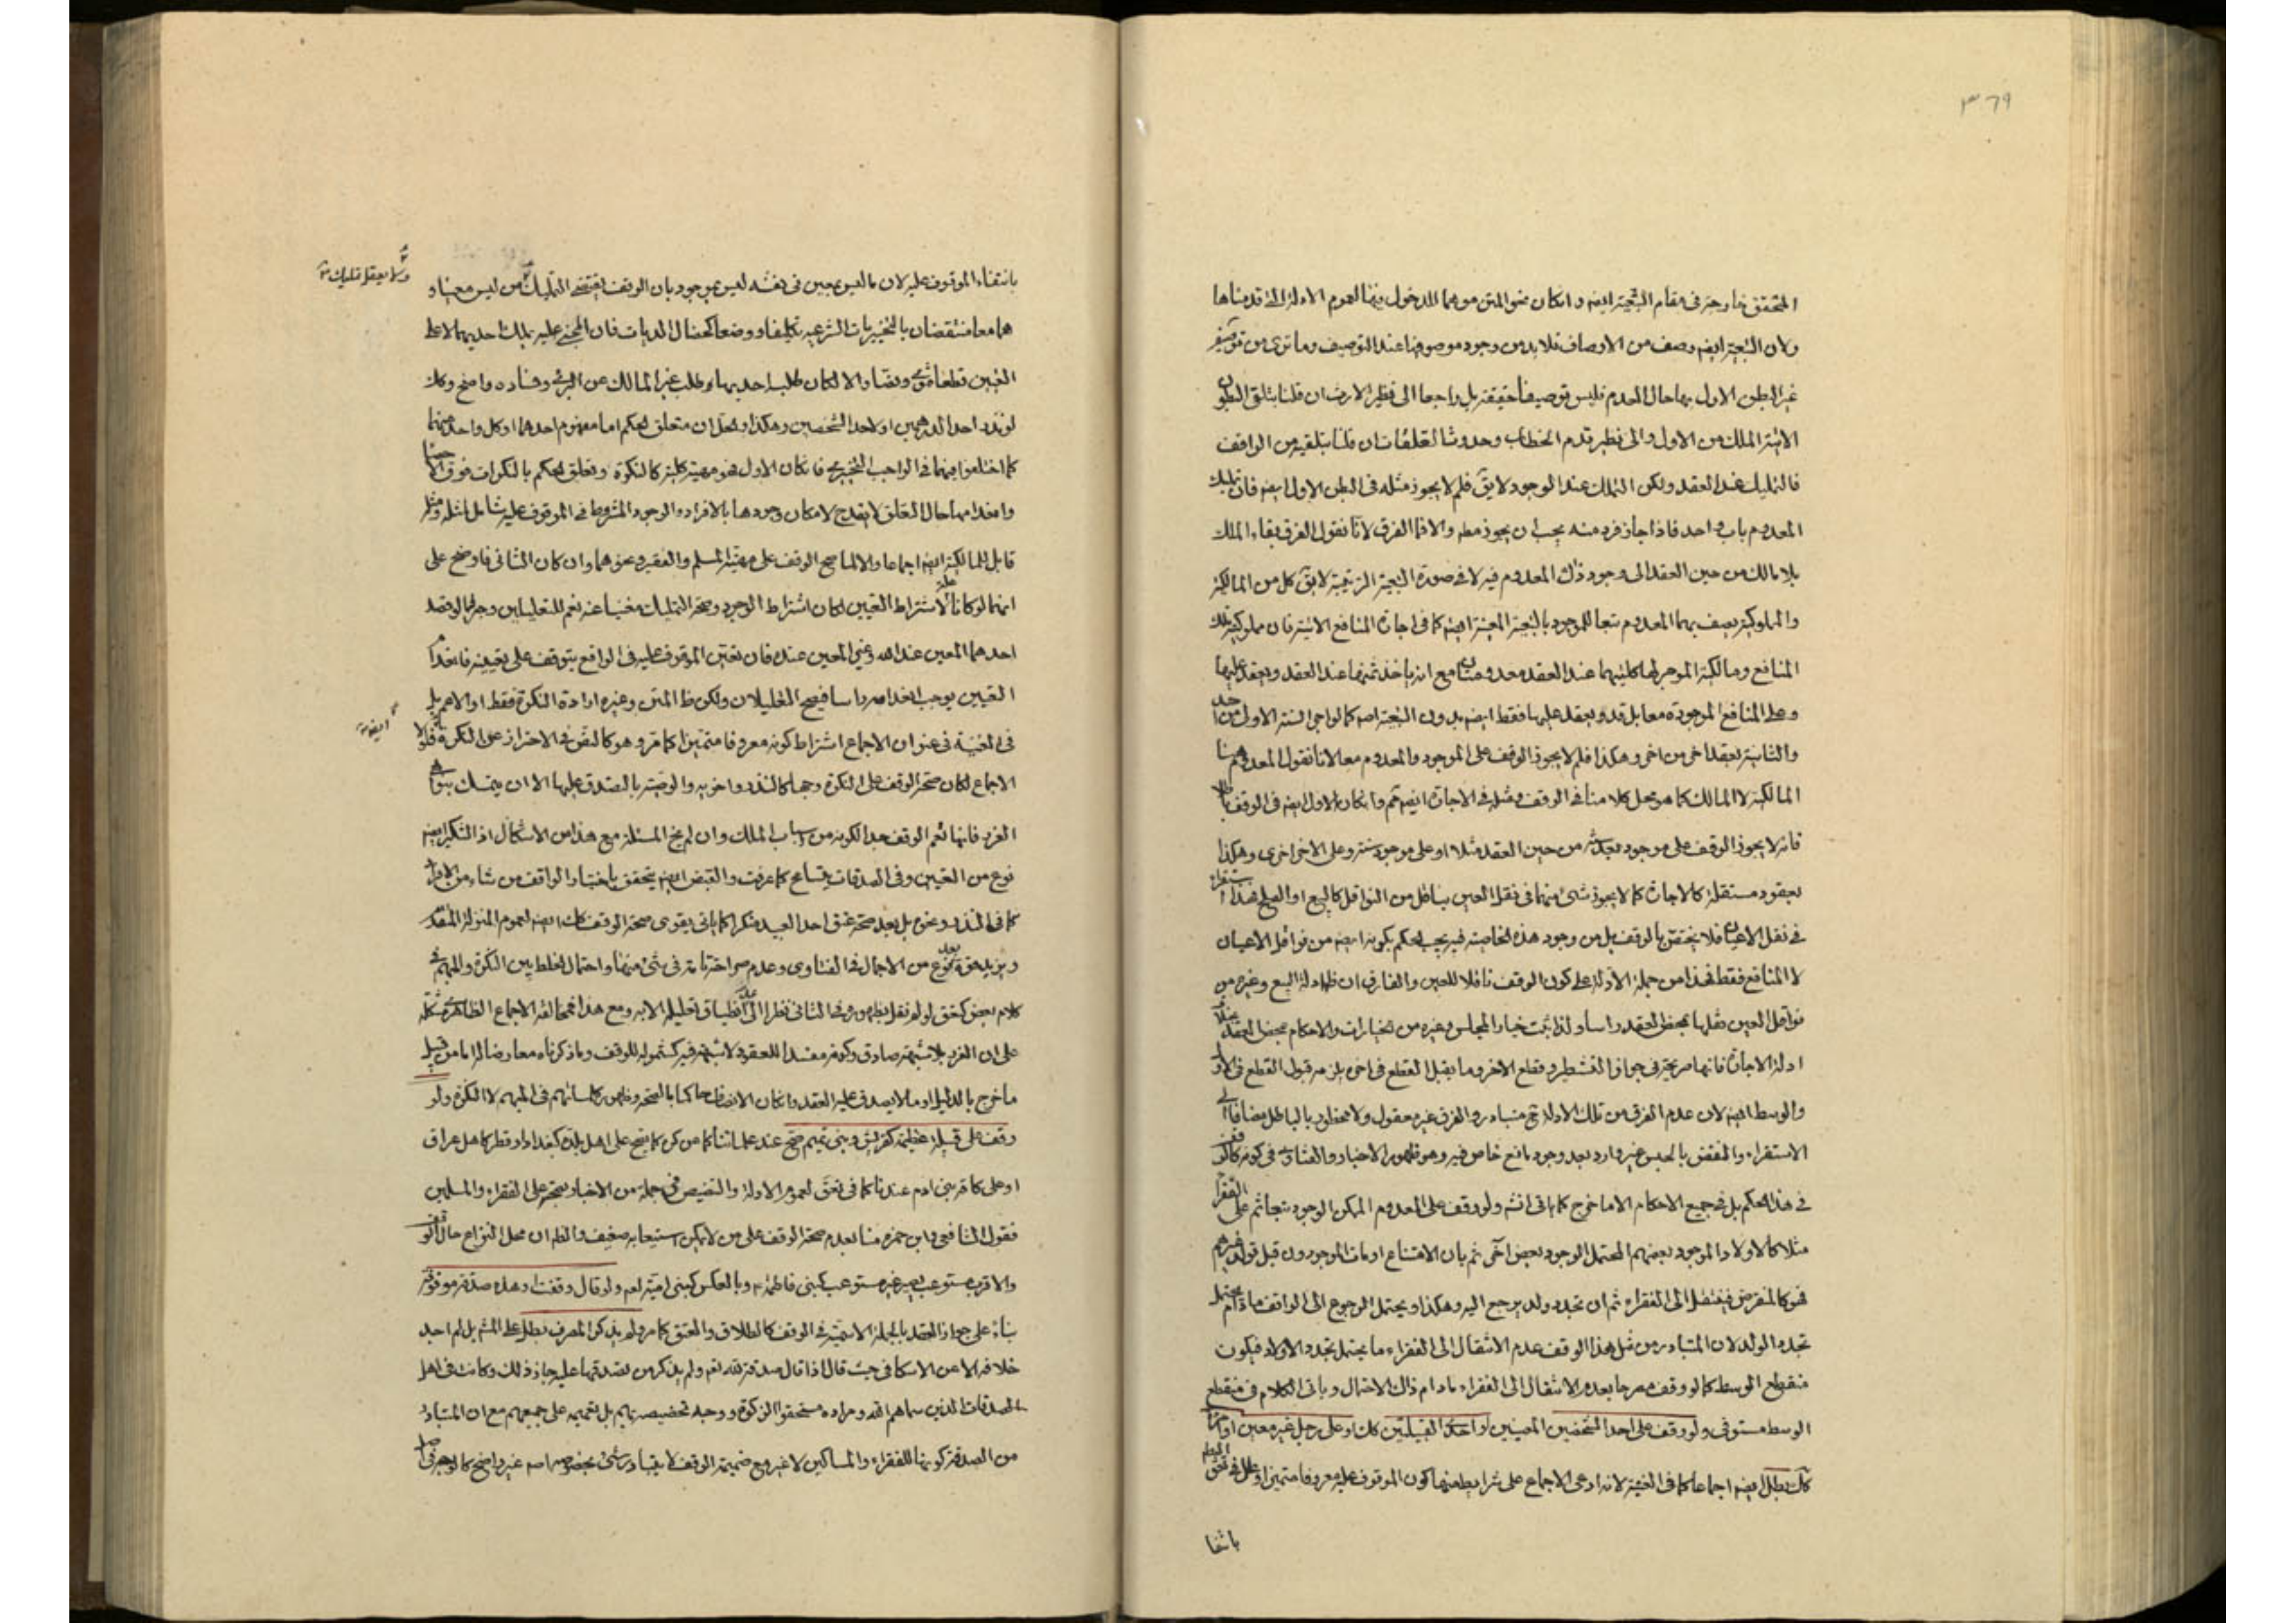 ٣٦٩
المتحقق خارجة فى مقام التبعية ايضه و امكان ضو المتن موهما للدخول فيها لعموم الادلة التى قدمناها
ولان التبعية ايضه وصف من الاوصاف فلا بد من وجود موصوفها عند التوصيف وما ترى من توصيف
غير البطن الاول بها حال العدم فليس توصيفا حقيقة بل راجعا الى نظير الارث ان قلنا بتلقى البطون
الاتية الملك من الاول والى نظير قدم الخطاب وحدوث التعلقات ان قلنا بتلقيه من الواقف
فالتمليك عند العقد ولكن التملك عند الوجود لا يق فلم لا يجوز مثله فى البطن الاول ايضه فان تمليك
المعدوم باب واحد فاذا جاز فرد منه يجب ان يجوز مطه والا فما الفرق لانا نقول الفرق بقاء الملك
بلا مالك من حين العقد الى وجود ذلك المعدوم فيه لا فى صورة التبعية الزمنية لا يق كل من المالكية
والمملوكية يصف بهما المعدوم تبعا للموجود بالتبعية المعينة ايضه كما فى اجارة المنافع الاتية فان مملوكية تلك
المنافع ومالكية الموجر لها كليتهما عند العقد معدومتان مع انه ياخذ ثمنها عند العقد ويعقد عليها
وعلى المنافع الموجودة معا بل قد ويعقد عليها فقط ايضه بدون التبعية اصه كما لو اجر السنة الاولى من احد
والثانية بعقد اخر من اخر وهكذا فلم لا يجوز الوقف على الموجود والمعدوم معا لانا نقول المعدوم هنا
المالكية لا المالك كما هو محل كلامنا فى الوقف ومثله فى الاجارة ايضه ثم وان كان الاول ايضه فى الوقف باطلا
فانه لا يجوز الوقف على موجود بعد سنة من حين العقد مثلا او على موجود سنة وعلى الاخر اخرى وهكذا
بعقود مستقلة كالاجارة كما لا يجوز شئ منهما فى نقل العين بناقل من النواقل كالبيع او الصلح هذا استقراء
فى نقل الاعيان فلا يختص بالوقف بل من وجود هذه الخاصية فيه يجب الحكم بكونه ايضه من نواقل الاعيان
لا المنافع فقط فهذا من جملة الادلة على كون الوقف ناقلا للعين والفارق ان ظه ادلة البيع وغيره من
نواقل العين نقلها بمحض العقد راسا ولذا ثبت خيار المجلس وغيره من الخيارات والاحكام بمحض العقد بخلاف
ادلة الاجارة فانها صريحة فى جواز التشطير وقطع الاخر وما يقبل القطع فى اخره يلزمه قبول القطع فى الاول
والوسط ايضه لان عدم الفرق من تلك الادلة ثم متبادر والفرق غير معقول ولا محظور بالبال مضافا الى
الاستقراء والنقض بالحبس غير وارد بعد وجود مانع خاص فيه وهو ظهور الاخبار والفتاوى فى كونه كالوقف
فى هذا الحكم بل فى جميع الاحكام الا ما خرج كما ياتى انشه ولو وقف على المعدوم الممكن الوجود تبعا ثم على الفقراء
مثلا كالاولاد الموجود بعضهم المحتمل الوجود بعض اخر ثم بان الامتناع او مات الموجودون قبل تولد غيرهم
فهو كالمنقرض فينتقل الى الفقراء ثم ان تجدد ولد يرجع اليه وهكذا ويحتمل الرجوع الى الواقف ما دام يحتمل
تجدد الولد لان المتبادر من مثل هذا الوقف عدم الانتقال الى الفقراء ما يحتمل تجدد الاولاد فيكون
منقطع الوسط كما لو وقف مصرحا بعدم الانتقال الى الفقراء مادام ذاك الاحتمال وياتى الكلام فى منقطع
الوسط مستوفى ولو وقف على احد الشخصين المعينين او احد القبيلتين كك او على رجل غير معين او امراة
كك بطل ايضه اجماعا كما فى الغنية لانه ادعى الاجماع على شرايط منها كون الموقوف عليه معروفا متميزا وعلل فى
باتفا
بانتفاء الموقوف عليه لان ما ليس بمعين فى نفسه ليس بموجود بان الوقف يقتضى التمليك من ليس معينا و
هما معا منتقضان بالتخييريات الشرعية تكليفا ووضعا كخصال الديات فان المجنى عليه يملك احديهما لا على
التعيين قطعا ونصا والا لكان طلب احديهما وطلب غير المالك عن البرئ وفساده واضح وكك
لو نذر احد الدرهمين او لاحد الشخصين وهكذا ولعل ان متعلق الحكم اما مفهوم احدهما او كل واحد منهما
كما اختلفوا فيهما فى الواجب التخييرى فان كان الاول فهو مهية كلية كالنكرة وتعلق الحكم بالنكرات فوق الاحصا
وانعدامها حال التعلق لا يقدح لامكان وجودها بالافراد والوجود المشروط فى الموقوف عليه شامل لمثله ومثله
قابل للمالكية ايضه اجماعا والا لما صح الوقف على مهية المسلم والفقير ونحوهما وان كان الثانى فاوضح على
انهما لو كانا علة لاشتراط التعيين لكان اشتراط الوجود وصحة التمليك مغنيا عنه نعم للتعليلين وجه لو قصد
احدهما المعين عند الله وغير المعين عنده فان تعين الموقوف عليه فى الواقع يتوقف على تعيينه فانعدام
التعيين يوجب انعدامه راسا فيصح التعليلان ولكن ظ المتن وغيره ارادة النكرة فقط او الاعم بل
فى الغنية فى عنوان الاجماع اشتراط كونه معروفا متميزا كما مر وهو كالنص فى الاحتراز عن النكرة فلولا
الاجماع لكان صحة الوقف على النكرة وجها كالنذر واخويه والوصية بالتصدق عليها الا ان يتمسك
الغرر فانها تعم الوقف جدا لكونه من اسباب الملك وان لم يخ المسئلة مع هذا من الاشكال اذ التنكير ايضه
نوع من التعيين وفى الصدقات يتسامح كما عرفت والقبض ايضه يتحقق باختيار الواقف من شاء من الافراد
كما فى النذر ونحوه بل بعد صحة عتق احد العبيد منكرا كما ياتى يقوى صحة الوقف كك ايضه لعموم المنزلة المتقدمة
ويزيد قوة نوع من الاجمال فى الفتاوى وعدم صراحة تامة فى شئ منها واحتمال الخلط بين النكرة والمبهم فى
كلام بعض كتحقق لو لم نقل بظهوره فى الثانى نظرا الى انطباق تعليله الا به ومع هذا فمخالفة الاجماع الظاهر مشكلة
على ان الغرر بلا شبهة صادق وكونه مفسدا للعقود لا شبهة فيه كشموله للوقف وما ذكرناه معارضا له اما من قبيل
ما خرج بالدليل او ما لا يصدق عليه العقد وان كان الانصاف حاكما بالصحة وظهور كلماتهم فى المبهم لا النكرة ولو
وقف على قبيلة عظيمة كقريش وبنى تميم صح عند علمائنا كما عن كره كما يصح على اهل بلدة كبغداد او قطر كاهل عراق
او على كافة بنى ادم عندنا كما فى تحق لعموم الادلة والتنصيص فى جملة من الاخبار بصحته على الفقراء والمسلمين
فقول الشافعى وابن حمزة منا بعدم صحة الوقف على من لا يمكن استيعابه ضعيف والظه ان محل النزاع حال الوقف
والا قرب مستوعب يصير غير مستوعب كبنى فاطمة وبالعكس كبنى امية لعهم ولو قال وقفت او هذه صدقة موقوفة
بناء على جواز العقد بالجملة الاسمية فى الوقف كالطلاق والعتق كما مر ولم يذكر المصرف بطل على المشهور بل لم اجد
خلافه الا عن الاسكافى حيث قال اذا قال صدقة لله تعه ولم يذكر من تصدق بها عليه جاز ذلك وكانت فى اهل
الصدقات الذين سماهم الله ومراده مستحقوا الزكوة ووجه تخصيصه بهم بل تعميمه على جميعهم مع ان المتبادر
من الصدقة كونها للفقراء والمساكين لا غير ومع ضميمة الوقف لا يتبادر شئ بخصوصه اصه غير واضح كالوجه فى